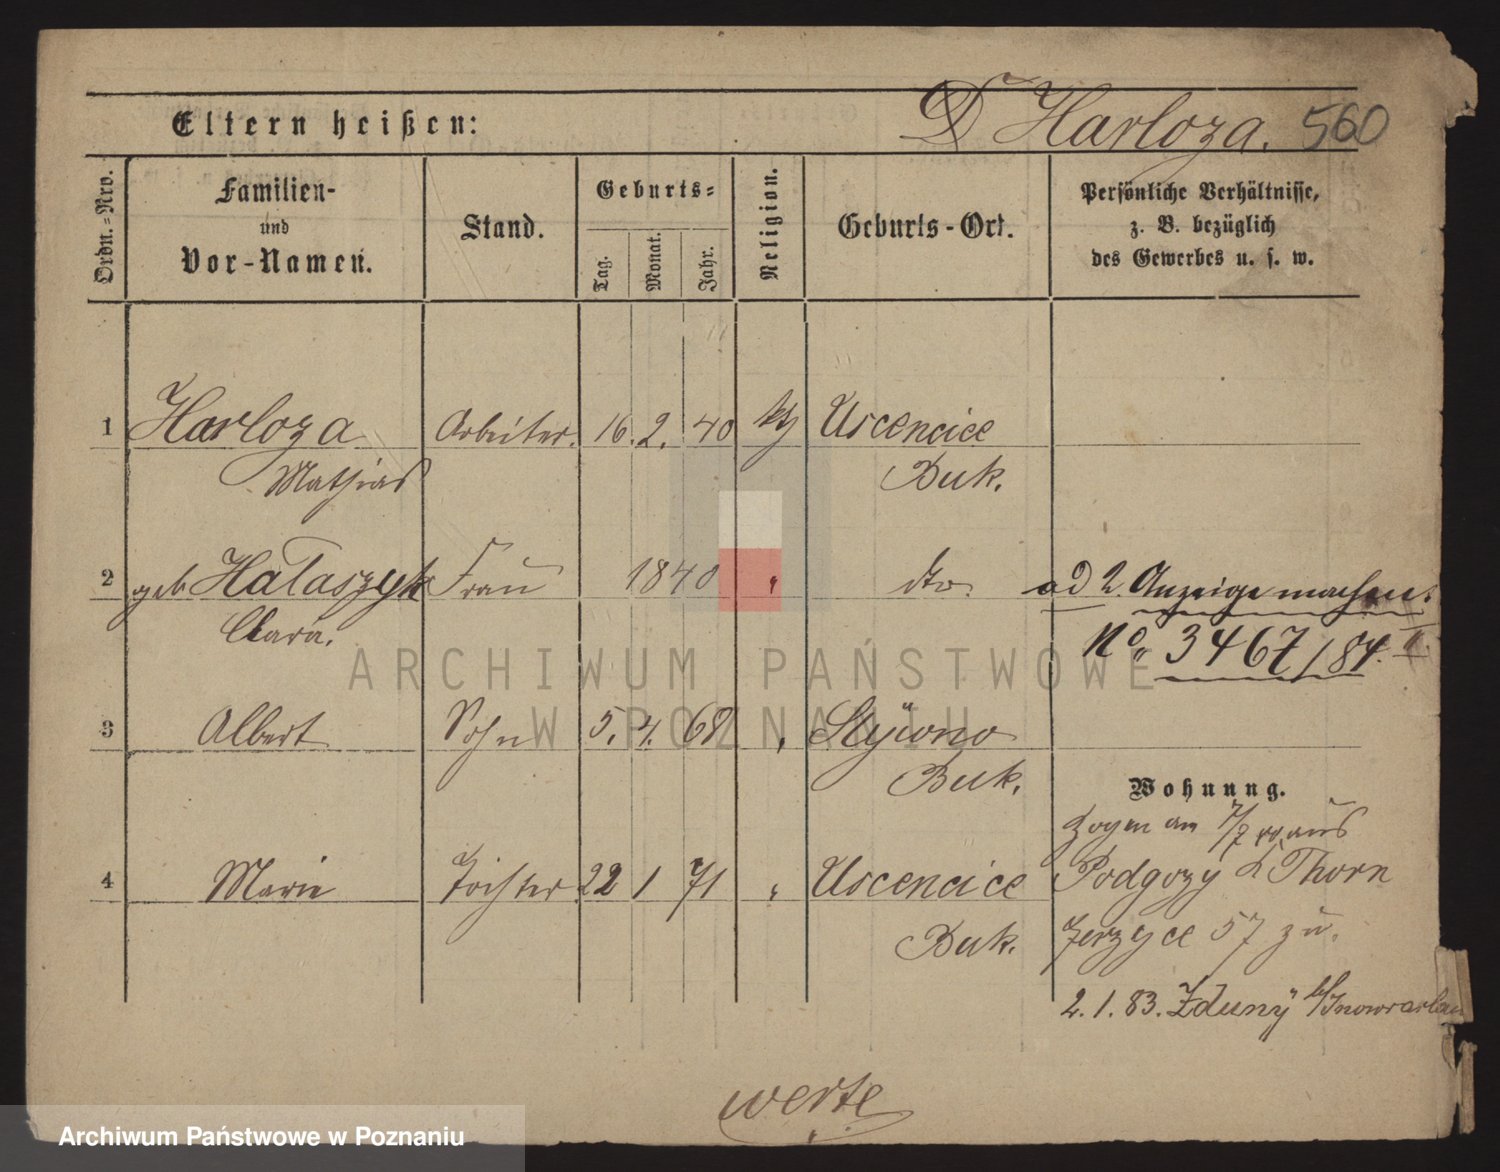 Eltern heißen:
Harloza. 560
Ordn.=Nro.
Familien-
und
Vor-Namen.
Stand.
Geburts=
Tag.
Monat.
Jahr.
Religion.
Geburts-Ort.
Persönliche Verhältnisse,
z. B. bezüglich
des Gewerbes u. s. w.
1 Harloza Arbeiter. 16. 2. 40 kth Uscencice
Mathias Buk.
2 geb Hataszyk Frau 1840 " dto. ad 2. Anzeige machen.
Clara. No. 3467/84. II.
ARCHIWUM PAŃSTWOWE
W POZNANIU
3 Albert Sohn 5. 4. 68 " Buk.
Wohnung.
Zogen am 7/7 aus
4 Marie Tochter 22 1 71 " Uscencice Podgorz Thorn
Buk. Jerzyce 57 zu.
2. 1. 83. Zduny b/Inowraclaw
werte
Archiwum Państwowe w Poznaniu